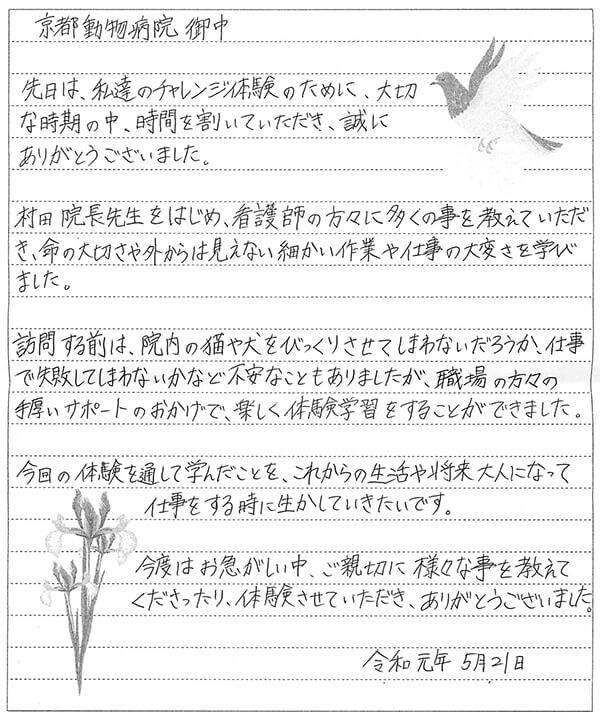 京都動物病院 御中
先日は、私達のチャレンジ体験のために、大切
な時期の中、時間を割いていただき、誠に
ありがとうございました。
村田院長先生をはじめ、看護師の方々に多くの事を教えていただ
き、命の大切さや外からは見えない細かい作業や仕事の大変さを学び
ました。
訪問する前は、院内の猫や犬をびっくりさせてしまわないだろうか、仕事
で失敗してしまわないかなど不安なこともありましたが、職場の方々の
手厚いサポートのおかげで、楽しく体験学習をすることができました。
今回の体験を通して学んだことを、これからの生活や将来大人になって
仕事をする時に生かしていきたいです。
今度はお急がしい中、ご親切に様々な事を教えて
くださったり、体験させていただき、ありがとうございました。
令和元年 5月21日